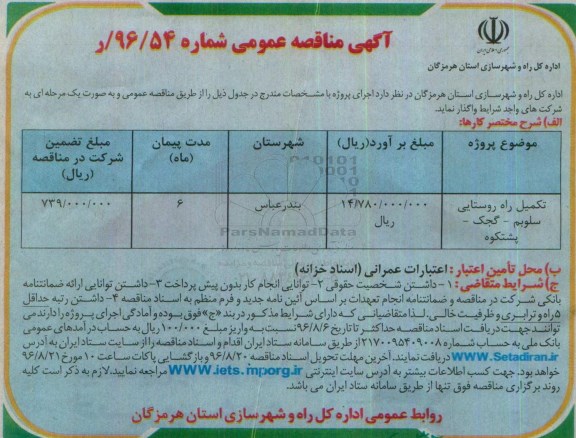 آگهی مناقصه عمومی شماره ۹۶/۵۴/ر
جمهوری اسلامی ایران
اداره کل راه و شهرسازی استان هرمزگان
اداره کل راه و شهرسازی استان هرمزگان در نظر دارد اجرای پروژه با مشخصات مندرج در جدول ذیل را از طریق مناقصه عمومی و به صورت یک مرحله ای به
شرکت های واجد شرایط واگذار نماید.
الف) شرح مختصر کارها:
موضوع پروژه مبلغ بر آورد(ریال) شهرستان مدت پیمان (ماه) مبلغ تضمین شرکت در مناقصه (ریال)
تکمیل راه روستایی سلویم - گجک - پشتکوه ۱۴/۷۸۰/۰۰۰/۰۰۰ ریال بندرعباس ۶ ۷۳۹/۰۰۰/۰۰۰
ParsNamadData
ب) محل تأمین اعتبار: اعتبارات عمرانی (اسناد خزانه)
ج) شرایط متقاضی: ۱- داشتن شخصیت حقوقی ۲- توانایی انجام کار بدون پیش پرداخت ۳- داشتن توانایی ارائه ضمانتنامه
بانکی شرکت در مناقصه و ضمانتنامه انجام تعهدات بر اساس آئین نامه جدید و فرم منظم به اسناد مناقصه ۴- داشتن رتبه حداقل
۵ راه و ترابری و ظرفیت خالی. لذا متقاضیانی که دارای شرایط مذکور در بند «ج» فوق بوده و آمادگی اجرای پروژه را دارند می
توانند جهت دریافت اسناد مناقصه حداکثر تا تاریخ ۹۶/۸/۶ نسبت به واریز مبلغ ۱۰۰/۰۰۰ ریال به حساب درآمدهای عمومی
بانک ملی به حساب شماره ۲۱۷۰۰۹۵۴۰۹۰۰۸ از طریق سامانه ستاد ایران اقدام و اسناد مناقصه را از سایت ستاد ایران به آدرس
www.Setadiran.ir دریافت نمایند. آخرین مهلت تحویل اسناد مناقصه ۹۶/۸/۲۰ و بازگشایی پاکات ساعت ۱۰ مورخ ۹۶/۸/۲۱
خواهد بود. جهت کسب اطلاعات بیشتر به آدرس سایت اینترنتی www.iets.mporg.ir مراجعه نمایید. لازم به ذکر است کلیه
روند برگزاری مناقصه فوق تنها از طریق سامانه ستاد ایران می باشد.
روابط عمومی اداره کل راه و شهرسازی استان هرمزگان